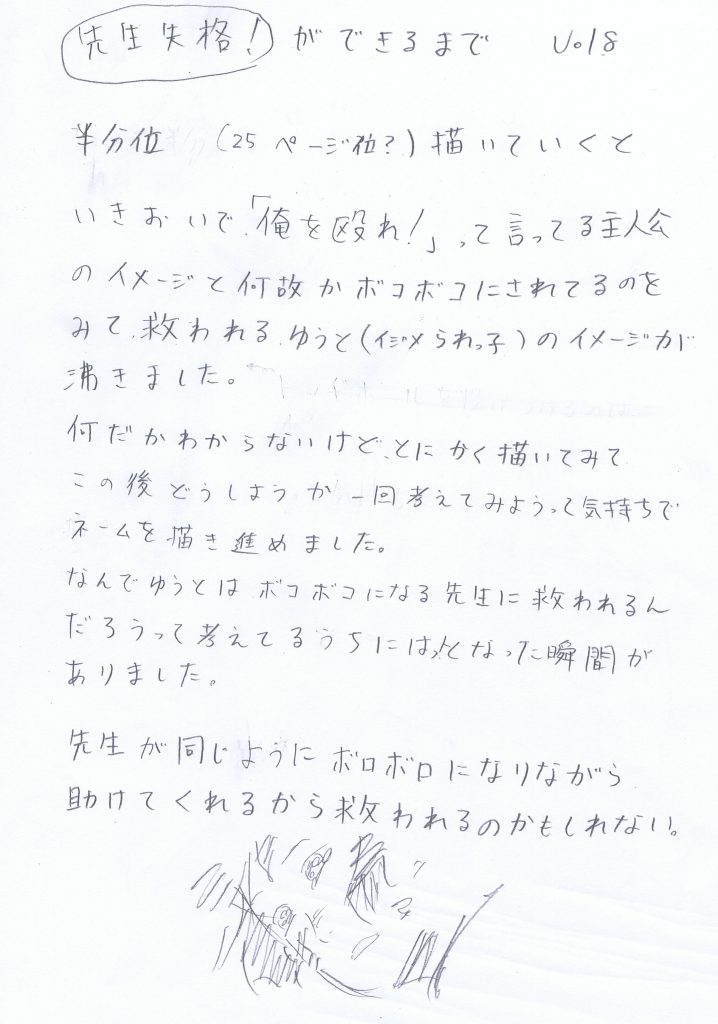 先生失格! ができるまで vol8
半分位 (25ページ位?) 描いていくと
いきおいで、「俺を殴れ!」って言ってる主人公
のイメージと何故かボコボコにされてるのを
みて、救われる、ゆうと(イジメられっ子)のイメージが
沸きました。
何だかわからないけど、とにかく描いてみて
この後どうしようか一回考えてみようって気持ちで
ネームを描き進めました。
なんでゆうとはボコボコになる先生に救われるん
だろうって考えてるうちにはっとなった瞬間が
ありました。
先生が同じようにボロボロになりながら
助けてくれるから救われるのかもしれない。